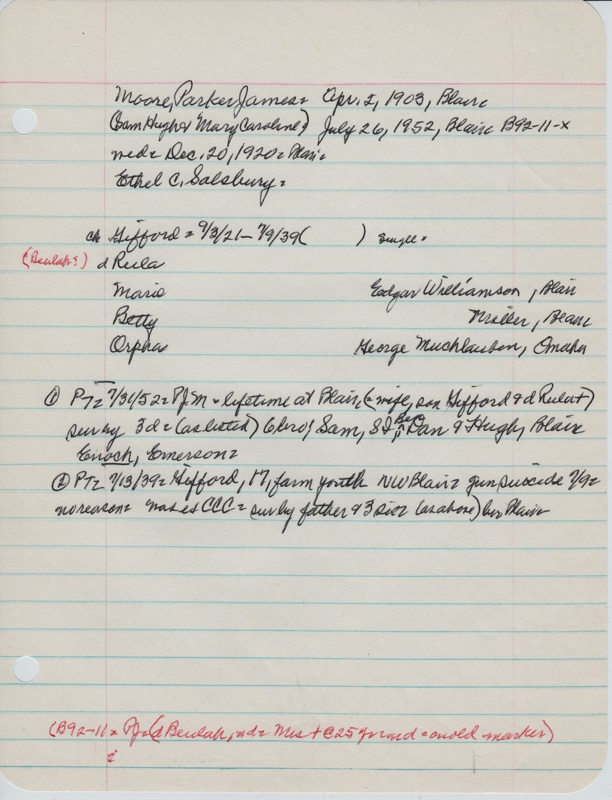 Moore, Parker James = Apr. 2, 1903, Blair
(Sam Hugh & Mary Caroline) July 26, 1952, Blair B92-11-X
md = Dec. 20, 1920 = Blair
Ethel C. Salsbury =
ch Gifford = 9/3/21 - 7/9/39 ( ) single =
(Beulah?) d Reula
Marie Edgar Williamson, Blair
Betty Miller, Blair
Orpha George Muchlausben, Omaha
① PT = 7/31/52 = PJM = lifetime at Blair, (= wife, son Gifford & d Reula +)
sur by 3 d = (as listed) 6 bro; Sam, Dan & Hugh, Blair
Enoch, Emerson =
② PT = 7/13/39 = Gifford, 17, farm youth NW Blair = gun suicide 7/9 =
no reason = CCC = sur by father & 3 sis = (as above) Blair
(B92-11 = PJ = (d Beulah, = + @25 = on old marker)